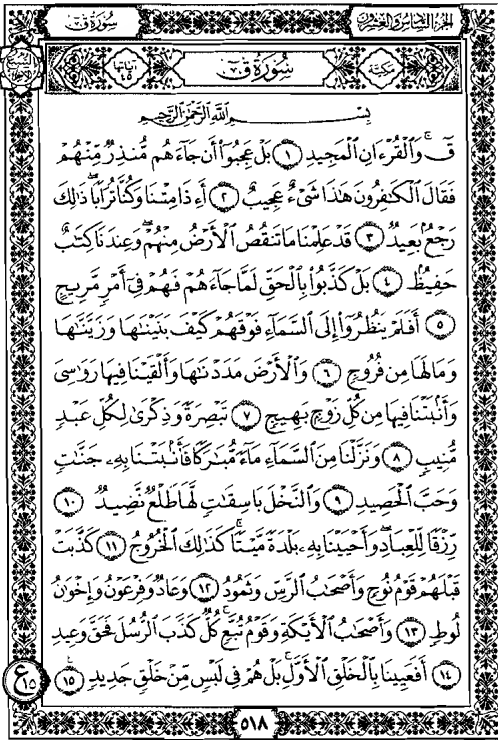 الجزء السادس والعشرون
سُورَةُ ق
مكية
سُورَةُ ق
آياتها ٤٥
بِسْمِ اللَّهِ الرَّحْمَٰنِ الرَّحِيمِ
قٓ ۚ وَالْقُرْءَانِ الْمَجِيدِ ١ بَلْ عَجِبُوٓا أَن جَآءَهُم مُّنذِرٌ مِّنْهُمْ
فَقَالَ الْكَٰفِرُونَ هَٰذَا شَىْءٌ عَجِيبٌ ٢ أَءِذَا مِتْنَا وَكُنَّا تُرَابًا ۖ ذَٰلِكَ
رَجْعٌۢ بَعِيدٌ ٣ قَدْ عَلِمْنَا مَا تَنقُصُ الْأَرْضُ مِنْهُمْ ۖ وَعِندَنَا كِتَٰبٌ
حَفِيظٌۢ ٤ بَلْ كَذَّبُوا۟ بِالْحَقِّ لَمَّا جَآءَهُمْ فَهُمْ فِىٓ أَمْرٍ مَّرِيجٍ
٥ أَفَلَمْ يَنظُرُوٓا۟ إِلَى السَّمَآءِ فَوْقَهُمْ كَيْفَ بَنَيْنَٰهَا وَزَيَّنَّٰهَا
وَمَا لَهَا مِن فُرُوجٍ ٦ وَالْأَرْضَ مَدَدْنَٰهَا وَأَلْقَيْنَا فِيهَا رَوَٰسِىَ
وَأَنۢبَتْنَا فِيهَا مِن كُلِّ زَوْجٍۭ بَهِيجٍ ٧ تَبْصِرَةً وَذِكْرَىٰ لِكُلِّ عَبْدٍ
مُّنِيبٍ ٨ وَنَزَّلْنَا مِنَ السَّمَآءِ مَآءً مُّبَٰرَكًا فَأَنۢبَتْنَا بِهِۦ جَنَّٰتٍ
وَحَبَّ الْحَصِيدِ ٩ وَالنَّخْلَ بَاسِقَٰتٍ لَّهَا طَلْعٌ نَّضِيدٌ ١٠
رِّزْقًا لِّلْعِبَادِ ۖ وَأَحْيَيْنَا بِهِۦ بَلْدَةً مَّيْتًا ۚ كَذَٰلِكَ الْخُرُوجُ ١١ كَذَّبَتْ
قَبْلَهُمْ قَوْمُ نُوحٍ وَأَصْحَٰبُ الرَّسِّ وَثَمُودُ ١٢ وَعَادٌ وَفِرْعَوْنُ وَإِخْوَٰنُ
لُوطٍ ١٣ وَأَصْحَٰبُ الْأَيْكَةِ وَقَوْمُ تُبَّعٍ ۚ كُلٌّ كَذَّبَ الرُّسُلَ فَحَقَّ وَعِيدِ
١٤ أَفَعَيِينَا بِالْخَلْقِ الْأَوَّلِ ۚ بَلْ هُمْ فِى لَبْسٍ مِّنْ خَلْقٍ جَدِيدٍ ١٥
ع ١٥
٥١٨